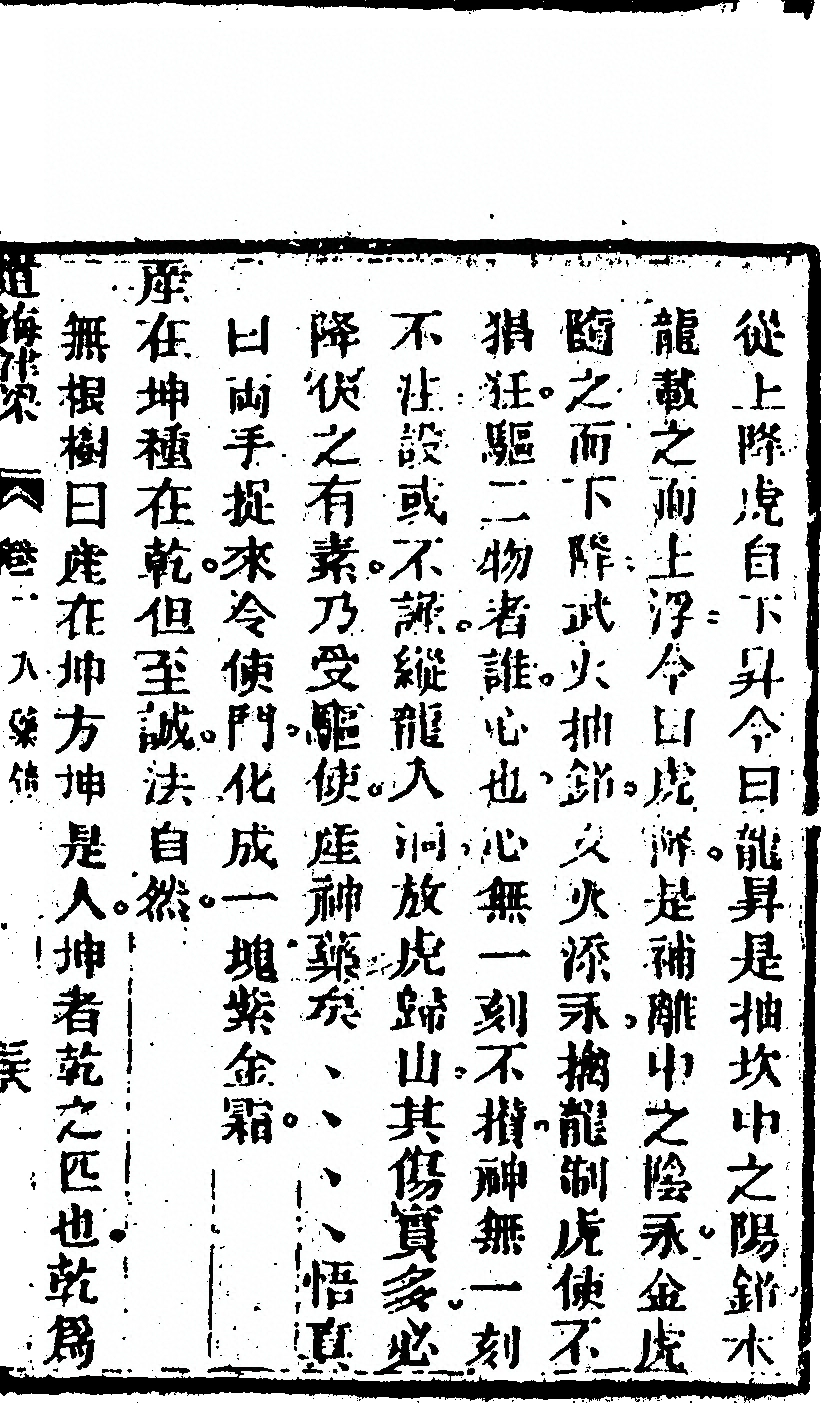 從上降虎自下昇今曰龍昇是抽坎中之陽鉛木
龍載之而上浮今曰虎降是補離中之陰汞金虎
隨之而下降武火抽鉛文火添汞擒龍制虎使不
猖狂驅二物者誰心也心無一刻不攢神無一刻
不注設或不誠縱龍入洞放虎歸山其傷實多必
降伏之有素乃受驅使産神藥矣、、、、悟真
曰兩手捉來令使鬥化成一塊紫金霜
産在坤種在乾但至誠法自然
無根樹曰産在坤方坤是人坤者乾之匹也乾爲
道海津梁 卷一 藥